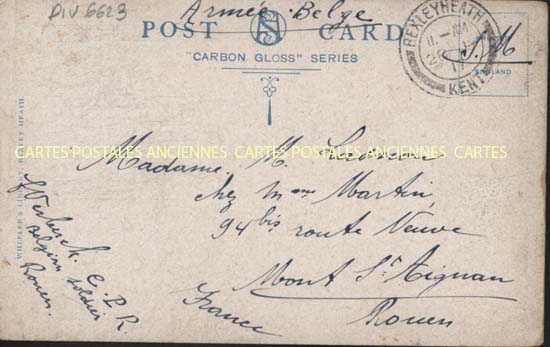 DIV 6623
Armée Belge
POST CARD
"CARBON GLOSS" SERIES
BEXLEYHEATH
KENT
S.M
ENGLAND
CARTES POSTALES ANCIENNES CARTES POSTALES ANCIENNES CARTES
Madame M.
chez Mme Martin,
94 bis route Neuve
Mont St Aignan
Rouen
France
C. I. R.
Belgian soldier
Rouen.
WHEELER'S LIBRARY, BEXLEY HEATH.